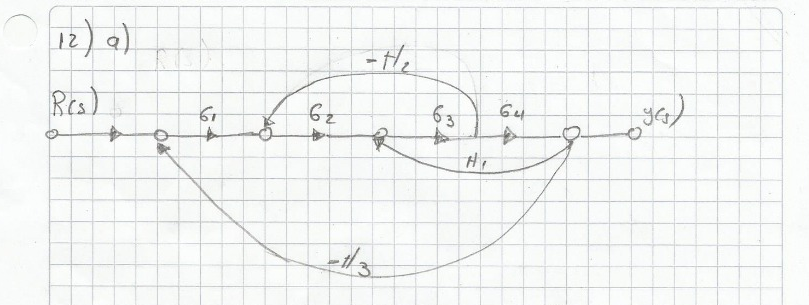 12) a)
-H2
R(s) G1 G2 G3 G4 y(s)
H1
-H3